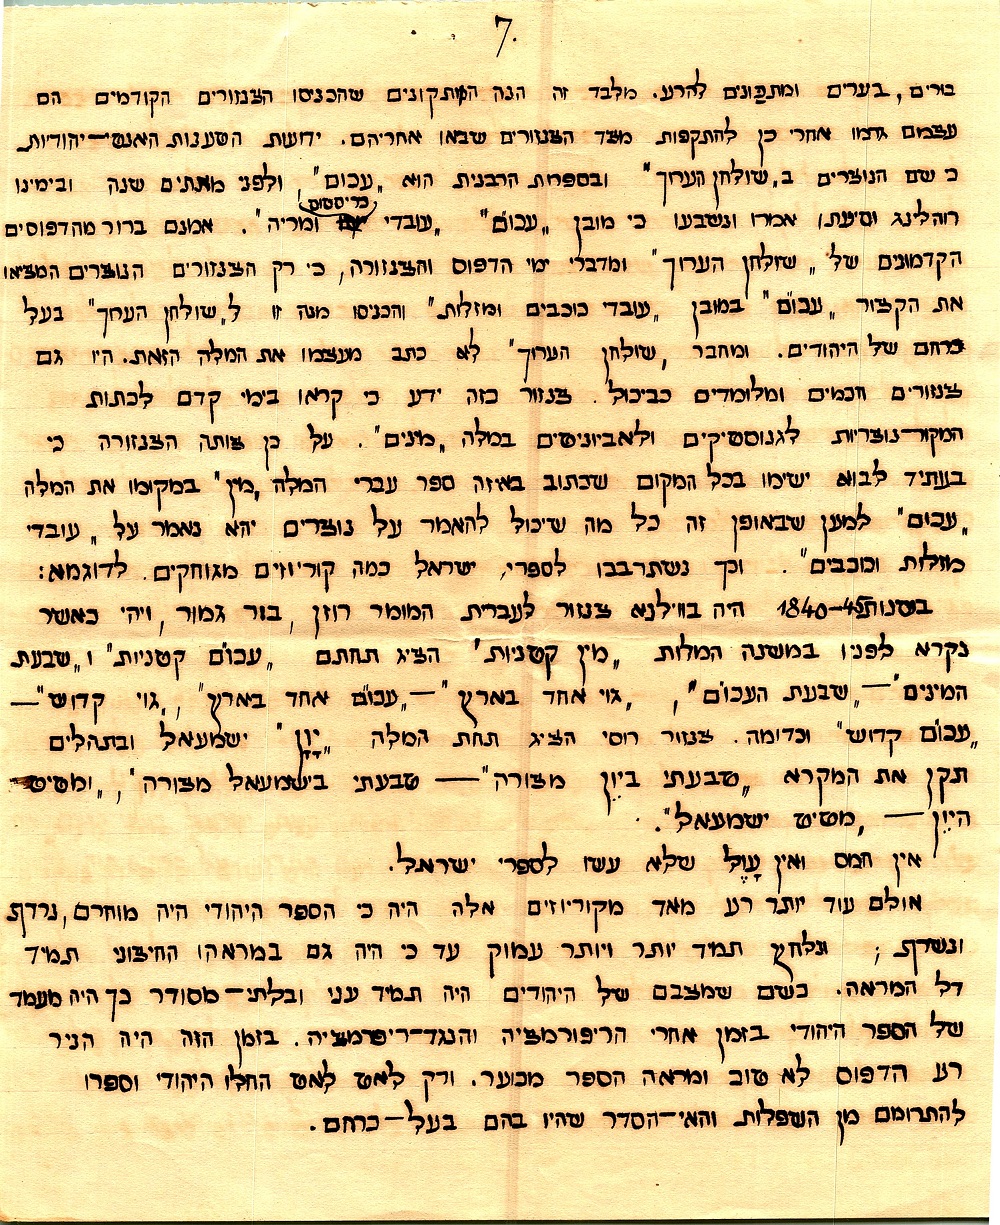 7.
בורים, בערים ומתכונים להרע. מלבד זה הנה התקונים שהכניסו הצנזורים הקודמים הם
עצמם גרמו אחרי כן להתקפות מצד הצנזורים שבאו אחריהם. ידועות השענות האנטי–יהודיות
כי שם הנוצרים ב„שולחן הערוך" ובספרות הרבנית הוא „עכום", ולפני מאתים שנה ובימינו
כריסטוס
רוהלינג וסיעתו אמרו ונשבעו כי מובן „עכום" „עובדי ומריה". אמנם ברור מהדפוסים
הקדמונים של „שולחן הערוך" ומדברי ימי הדפוס והצנזורה, כי רק הצנזורים הנוצרים המציאו
את הקצור „עכום" במובן „עובדי כוכבים ומזלות" והכניסו מנה זו ל„שולחן הערוך" בעל
כרחם של היהודים. ומחבר „שולחן הערוך" לא כתב מעצמו את המלה הזאת. היו גם
צנזורים חכמים ומלומדים כביכול. צנזור כזה ידע כי קראו בימי קדם לכתות
המקור–נוצריות לגנוסטיקים ולאביוניטים במלה „מינים". על כן צותה הצנזורה כי
בעתיד לבוא ישימו בכל המקום שכתוב באיזה ספר עברי המלה „מין" במקומו את המלה
„עכום" למען שבאופן זה כל מה שיכול להאמר על נוצרים יהא נאמר על „עובדי
מזלות וכוכבים". וכך נשתרבבו לספרי ישראל כמה קוריוזים מגוחקים. לדוגמא:
בשנות 1840–45 היה בווילנא צנזור לעברית המומר רוזן, בור גמור, ויהי כאשר
נקרא לפניו במשנה המלות „מין קטניות" הציג תחתם „עכום קטניות" ו„שבעת
המינים" — „שבעת העכום", „גוי אחד בארץ" — „עכום אחד בארץ", „גוי קדוש" —
„עכום קדוש" וכדומה. צנזור רוסי הציג תחת המלה „יָוָן" ישמעאל ובתהלים
תקן את המקרא „טבעתי ביון מצורה" — טבעתי בישמעאל מצורה", „ומטיט
היון — „מטיט ישמעאל".
אין חמס ואין עָוֶל שלא עשו לספרי ישראל.
אולם עוד יותר רע מאד מקוריוזים אלה היה כי הספר היהודי היה מוחרם, נרדף
ונשרף; ונלחץ תמיד יותר ויותר עמוק עד כי היה גם במראהו החיצוני תמיד
דל המראה. כשם שמצבם של היהודים היה תמיד עני ובלתי–מסודר כך היה מעמד
של הספר היהודי בזמן אחרי הריפורמציה והנגד–ריפרמציה. בזמן הזה היה הניר
רע הדפוס לא טוב ומראה הספר מכוער. ורק לאט לאט החלו היהודי וספרו
להתרומם מן השפלות והאי–הסדר שהיו בהם בעל–כרחם.